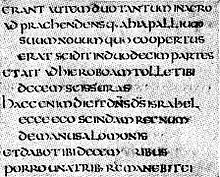 ERANT AUTEM DUO TANTUM IN AGRO
ADPRAEHENDENSQ· AHIA PALLIUM
SUUM NOUUM QUO COOPERTUS
ERAT SCIDIT IN DUODECIM PARTES
ET AIT AD HIEROBOAM TOLLE TIBI
DECEM SCISSURAS
HAEC ENIM DICIT DNS DS ISRAHEL
ECCE EGO SCINDAM REGNUM
DE MANU SALOMONIS
ET DABO TIBI DECEM TRIBUS
PORRO UNA TRIBUS REMANEBIT EI